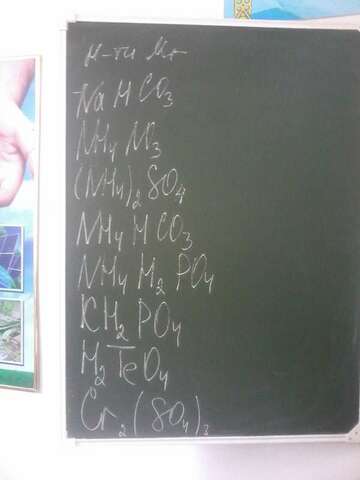 н-ти Mr
NaHCO3
NH4NO3
(NH4)2SO4
NH4HCO3
NH4H2PO4
KH2PO4
H2TeO4
Cr2(SO4)3